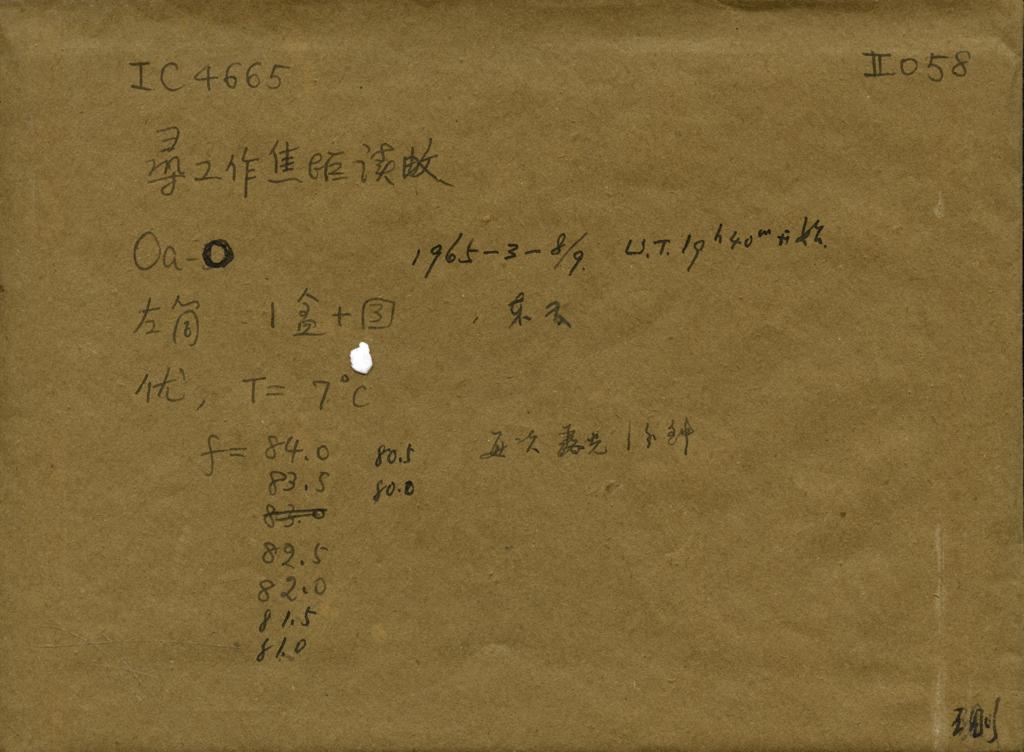 IC4665 II058
寻工作焦距读数
Oa-O 1965-3-8/9. U.T.19ʰ40ᵐ开始.
左筒 1盒+③ , 东天
优, T=7°C
f=84.0 80.5 每次露光1分钟
83.5 80.0
83.0
82.5
82.0
81.5
81.0
王刚